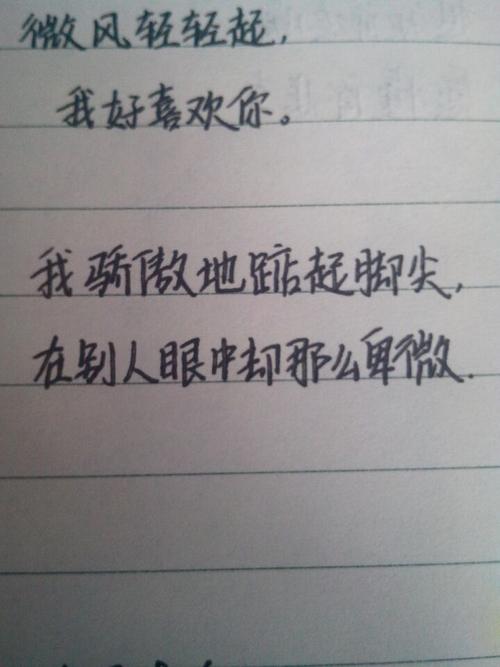 微风轻轻起，
我好喜欢你。
我骄傲地踮起脚尖，
在别人眼中却那么卑微.